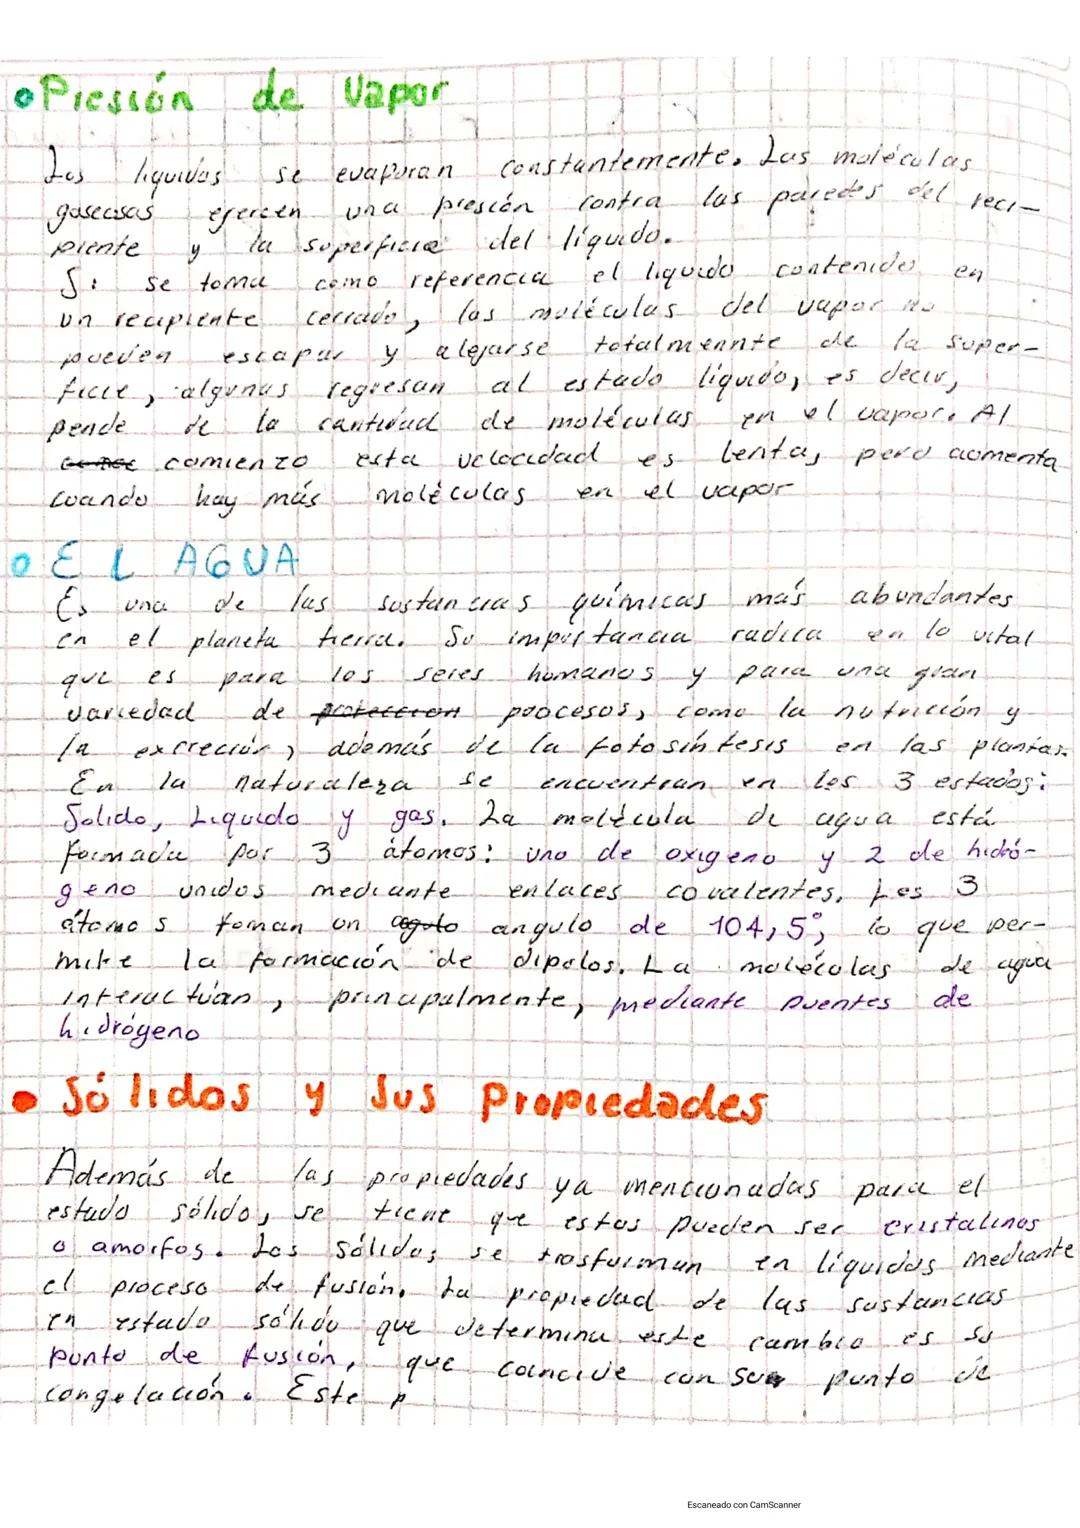 •Presión de Vapor
Los liquidos se evaporan constantemente. Las moléculas
gaseosas ejercen una presión contra las paredes del reci-
piente y la superficie del líquido.
Si se toma como referencia el liquido contenido en
un recipiente cerrado, las moléculas del vapor no
pueden escapar y alejarse totalmennte de la super-
ficie, algunas regresan al estado líquido, es decir,
pende de la cantidad de moléculas en el vapor. Al
comienzo esta velocidad es lenta, pero aumenta
cuando hay más moléculas en el vapor
• EL AGUA
Es una de las sustancias químicas más abundantes
en el planeta tierra. Su importancia radica en lo vital
que es para los seres humanos y para una gran
variedad de proteccion procesos, como la nutrición y
la excreción, además de la fotosintesis en las plantas.
En la naturaleza se encuentran en los 3 estados:
Solido, Liquido y gas. La molécula de agua está
formada por 3 átomos: uno de oxigeno y 2 de hidró-
geno unidos mediante enlaces covalentes. Los 3
átomos foman un angulo de 104,5°, lo que per-
mite la formación de dipolos. La moléculas de agua
interactúan, principalmente, mediante puentes de
hidrógeno
• Sólidos y Sus Propiedades
Además de las propiedades ya mencionadas para el
estado sólido, se tiene que estos pueden ser cristalinos
o amorfos. Los sólidos se trasforman en líquidos mediante
el proceso de fusión. La propiedad de las sustancias
en estado sólido que determina este cambio es su
punto de fusión, que coincide con su punto de
congelación. Este p
Escaneado con CamScanner